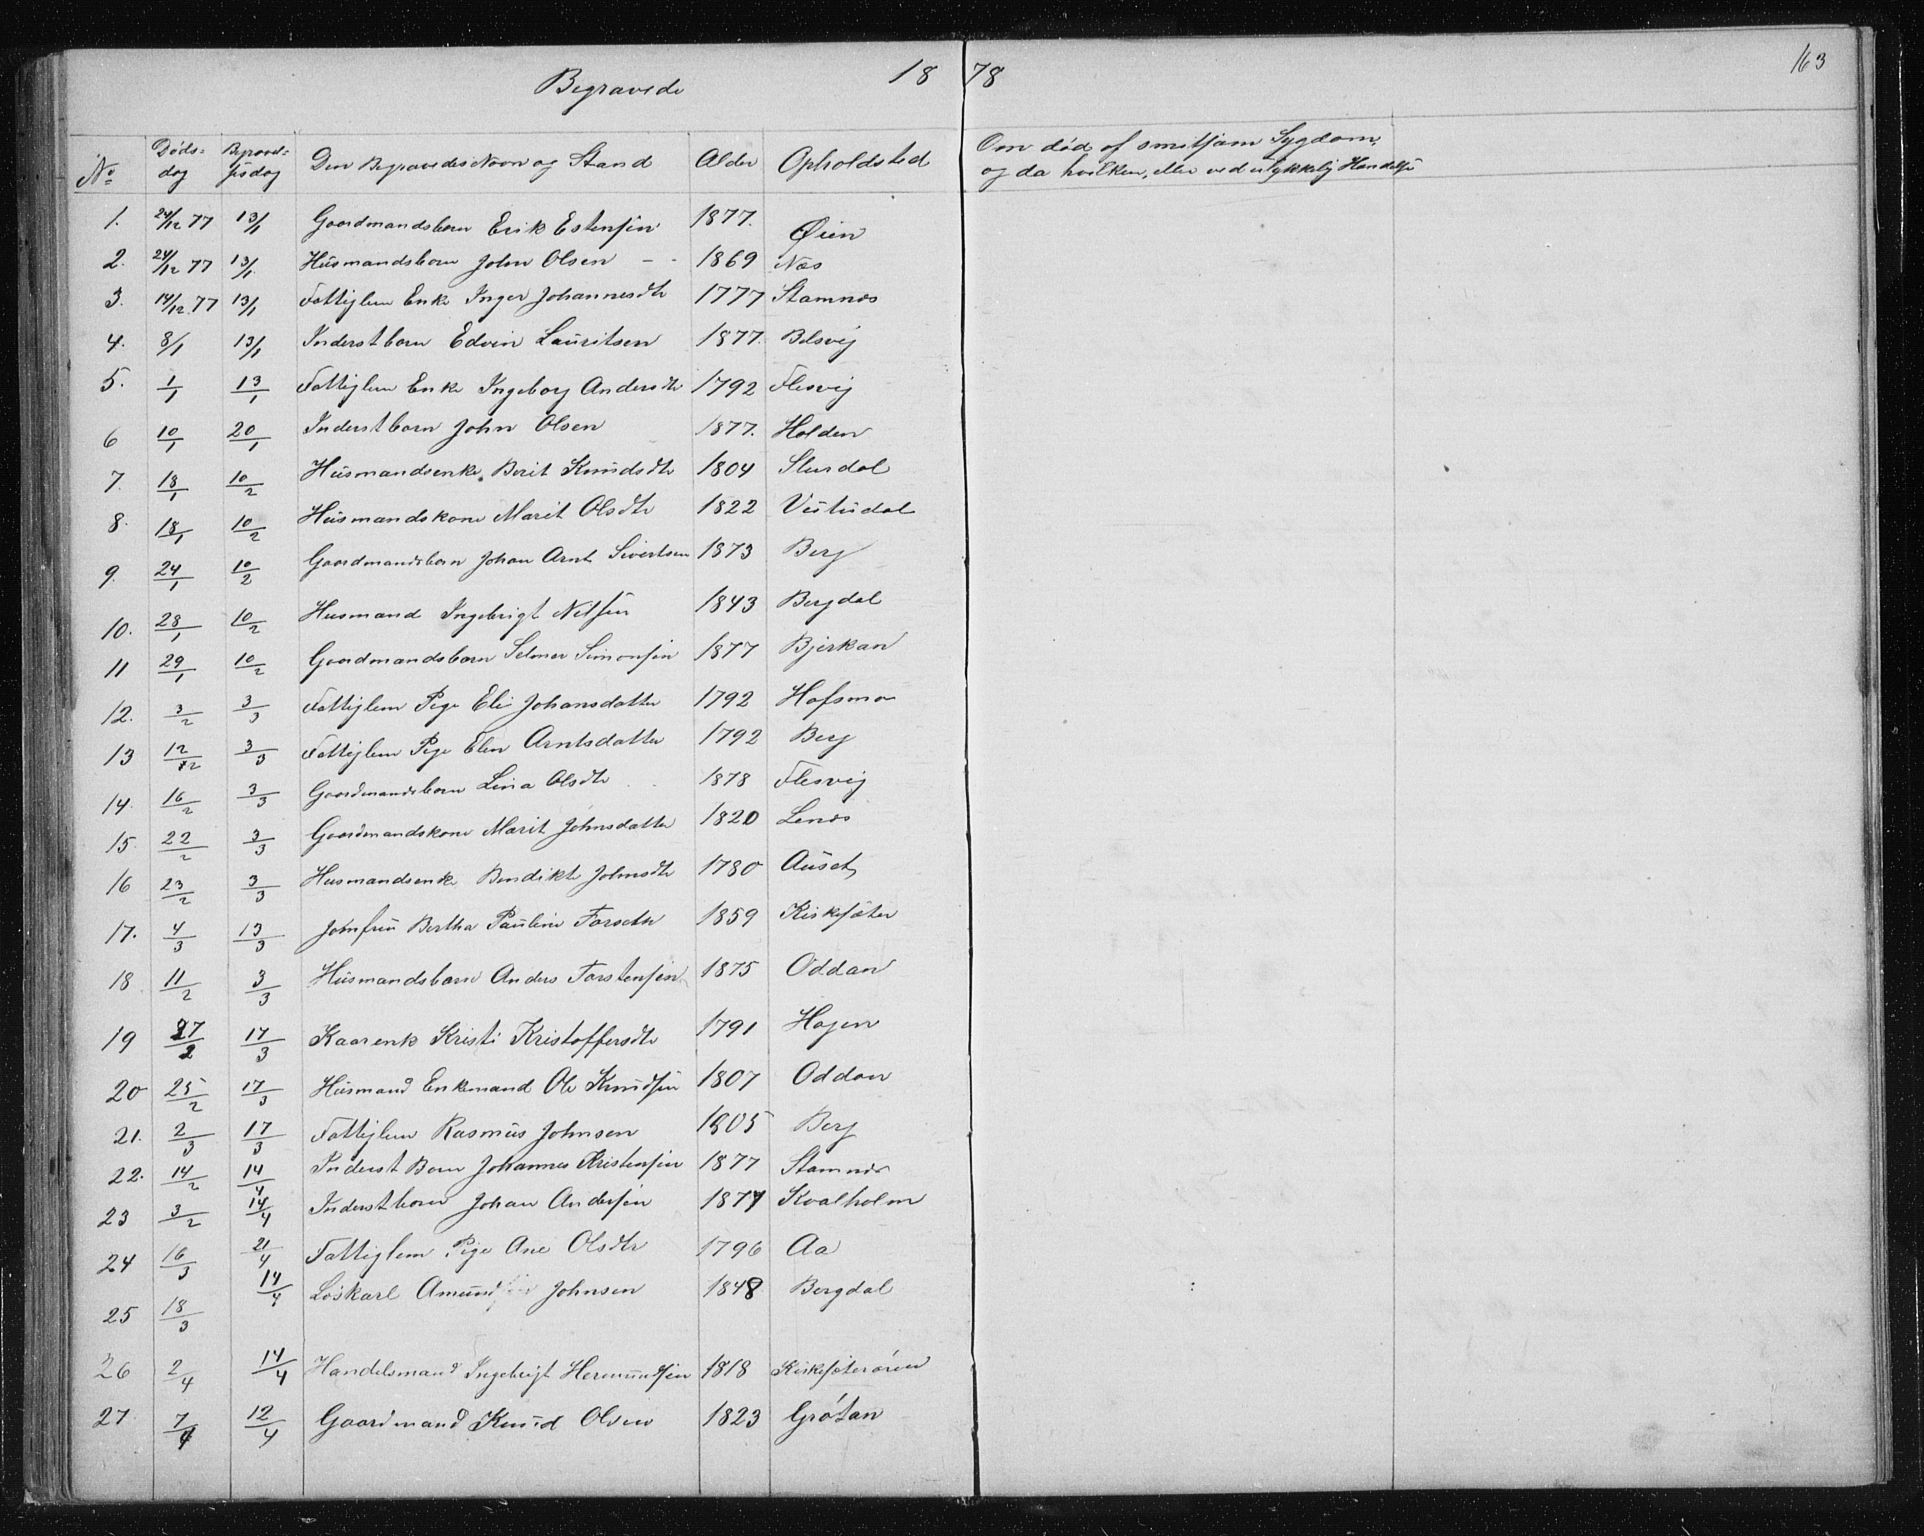 163
Begravede 1878
No Døds-dag Begravel-sesdag Den Begravedes Navn og Stand Alder Opholdsted Om død af smitsom Sygdom, og da hvilken, eller ved ulykkelig Hændelse
1. 24/12 77 13/1 Gaardmandsbarn Erik Estensen 1877. Øien
2. 24/12 77 13/1 Husmandsbarn John Olsen - - 1869 Næs
3. 14/12 77 13/1 Fattiglem Enke Inger Johannesdtr 1777 Stamnæs
4. 8/1 13/1 Inderstbarn Edvin Lauritsen 1877. Belsvig
5. 1/1 13/1 Fattiglem Enke Ingeborg Andersdtr 1792 Flesvig
6 10/1 20/1 Inderstbarn John Olsen 1877. Holden
7. 18/1 10/2 Husmandsenke Berit Knudsdtr 1804 Slurdal
8. 18/1 10/2 Husmandskone Marit Olsdtr 1822
9. 24/1 10/2 Gaardmandsbarn Johan Arnt Sivertsen 1873 Berg
10. 28/1 10/2 Husmand Ingebrigt Nilsen 1843 Bergdal
11 29/1 10/2 Gaardmandsbarn Selmer Simonsen 1877 Bjerkan
12. 3/2 3/3 Fattiglem Pige Eli Johansdatter 1792 Hafsmo
13 12/12 3/3 Fattiglem Pige Elen Arntsdatter 1792 Berg
14. 16/2 3/3 Gaardmandsbarn Lina Olsdtr 1878 Flesvig
15 22/2 3/3 Gaardmandskone Marit Johnsdatter 1820 Lenæs
16 23/2 3/3 Husmandsenke Bendikte Johnsdtr 1780 Auset
17. 4/3 13/3 Jomfru Bertha Pauline Forseth 1859 Kirksæter
18 11/2 3/3 Husmandsbarn Anders Torstensen 1875 Oddan
19 27/2 17/3 Kaarenk Kristi Kristoffersdtr 1791 Hagen
20 25/2 17/3 Husmand Enkemand Ole Knudsen 1807 Oddan
21. 2/3 17/3 Fattiglem Rasmus Johnsen 1805 Berg
22. 14/2 14/4 Inderst Barn Johannes Kristensen 1877 Stamnæs
23 3/2 14/4 Inderstbarn Johan Andersen 1877 Kvalholm
24 16/3 21/4 Fattiglem Pige Ane Olsdtr 1796 Aa
25 18/3 14/4 Løskarl Amund Johnsen 1848 Bergdal
26 2/4 14/4 Handelsmand Ingebrigt Hermundsen 1818 Kirksæterøren
27 7/4 12/4 Gaardmand Knud Olsen 1823 Grøtan